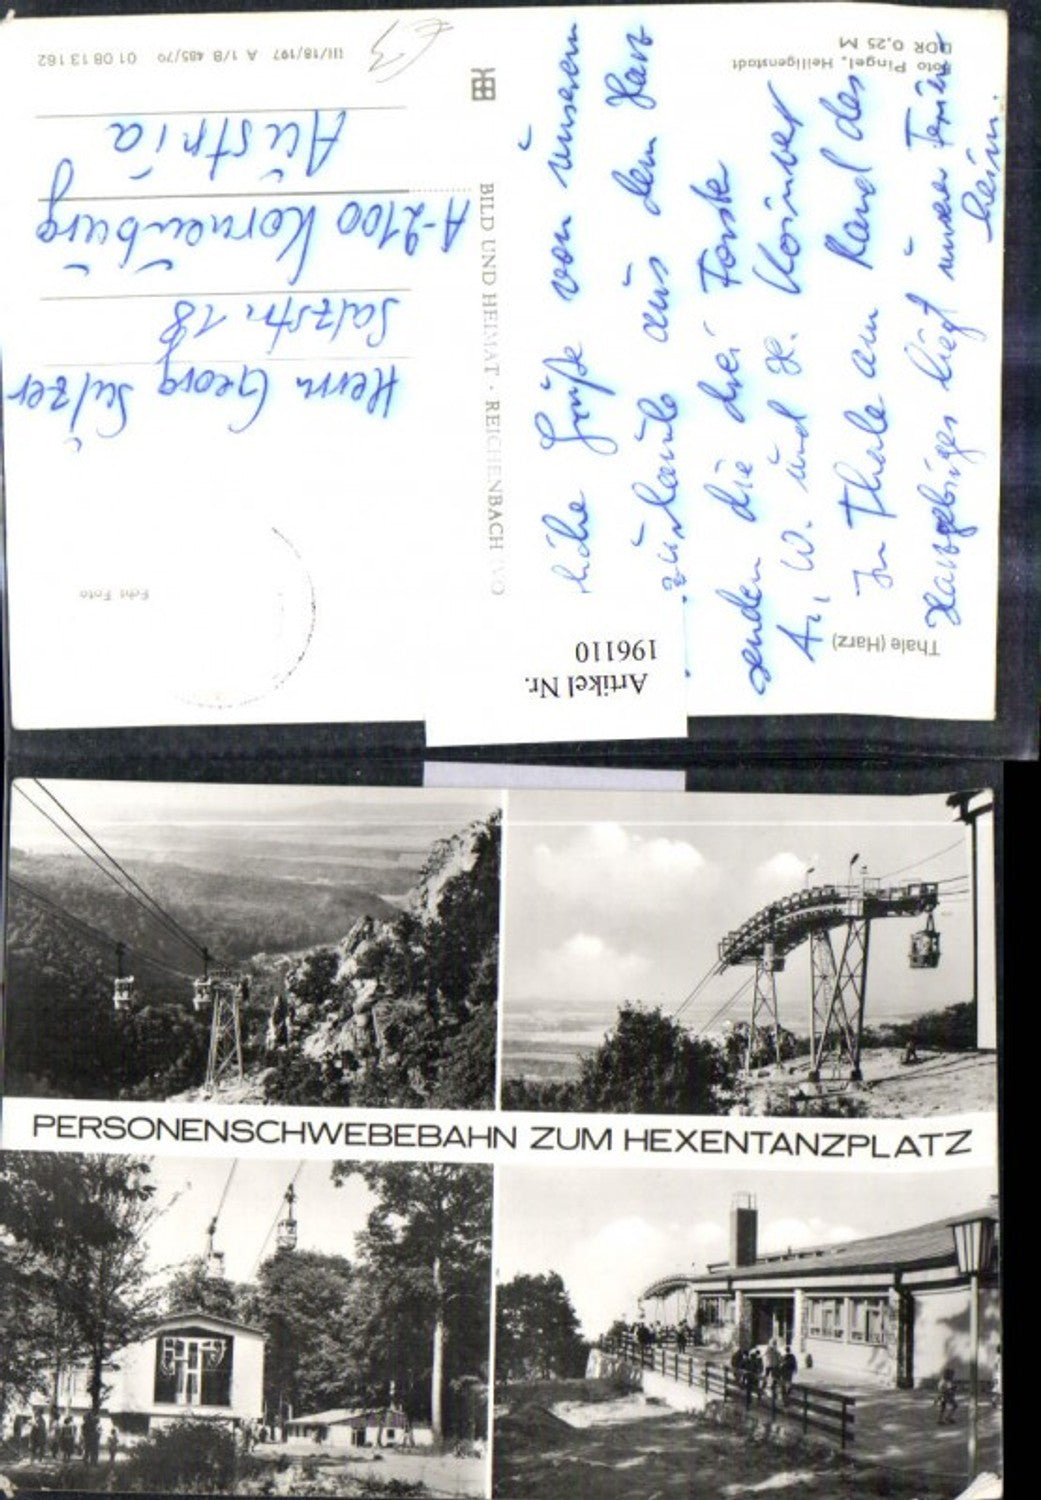 Thale (Harz)
Foto Pingel, Heiligenstadt
DDR 0,25 M
liebe Grüße von unserem
Urlaub aus dem Harz
senden die drei
A., W. und H.
In Thale am Rand des
Harzgebirges liegt unser Ferien
heim.
BILD UND HEIMAT · REICHENBACH (VO
III/18/197 A 1/B 485/79 01 08 13 162
Echt Foto
Herrn Georg Sulzer
Salzstr. 18
A-2100 Korneuburg
Austria
€3
Artikel Nr.
196110
PERSONENSCHWEBEBAHN ZUM HEXENTANZPLATZ